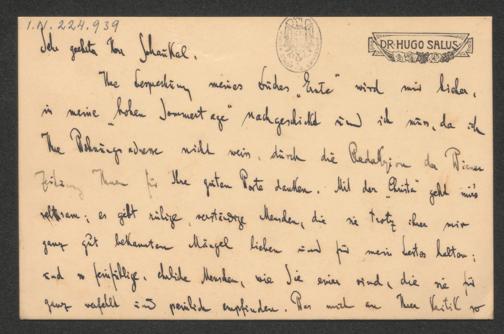 I.N. 224.939
DR. HUGO SALUS
Sehr geehrter Herr Schaukal.
Ihre Besprechung meines Buches „Ernte“ wird mir hieher,
in meine „hohen Sommertage“ nachgeschickt und ich muss, da ich
Ihre Wohnungsadresse nicht weiss, durch die Redaktion der Wiener
Zeitung Ihnen für Ihre guten Worte danken. Mit der „Ernte“ geht mir's
seltsam; es gibt ruhige, verständige Menschen, die sie trotz ihrer mir
ganz gut bekannten Mängel lieben und für mein bestes halten;
und so feinfühlige, ehrliche Menschen, wie Sie einer sind, die sie für
ganz verfehlt und peinlich empfinden. Was mich an Ihrer Kritik so